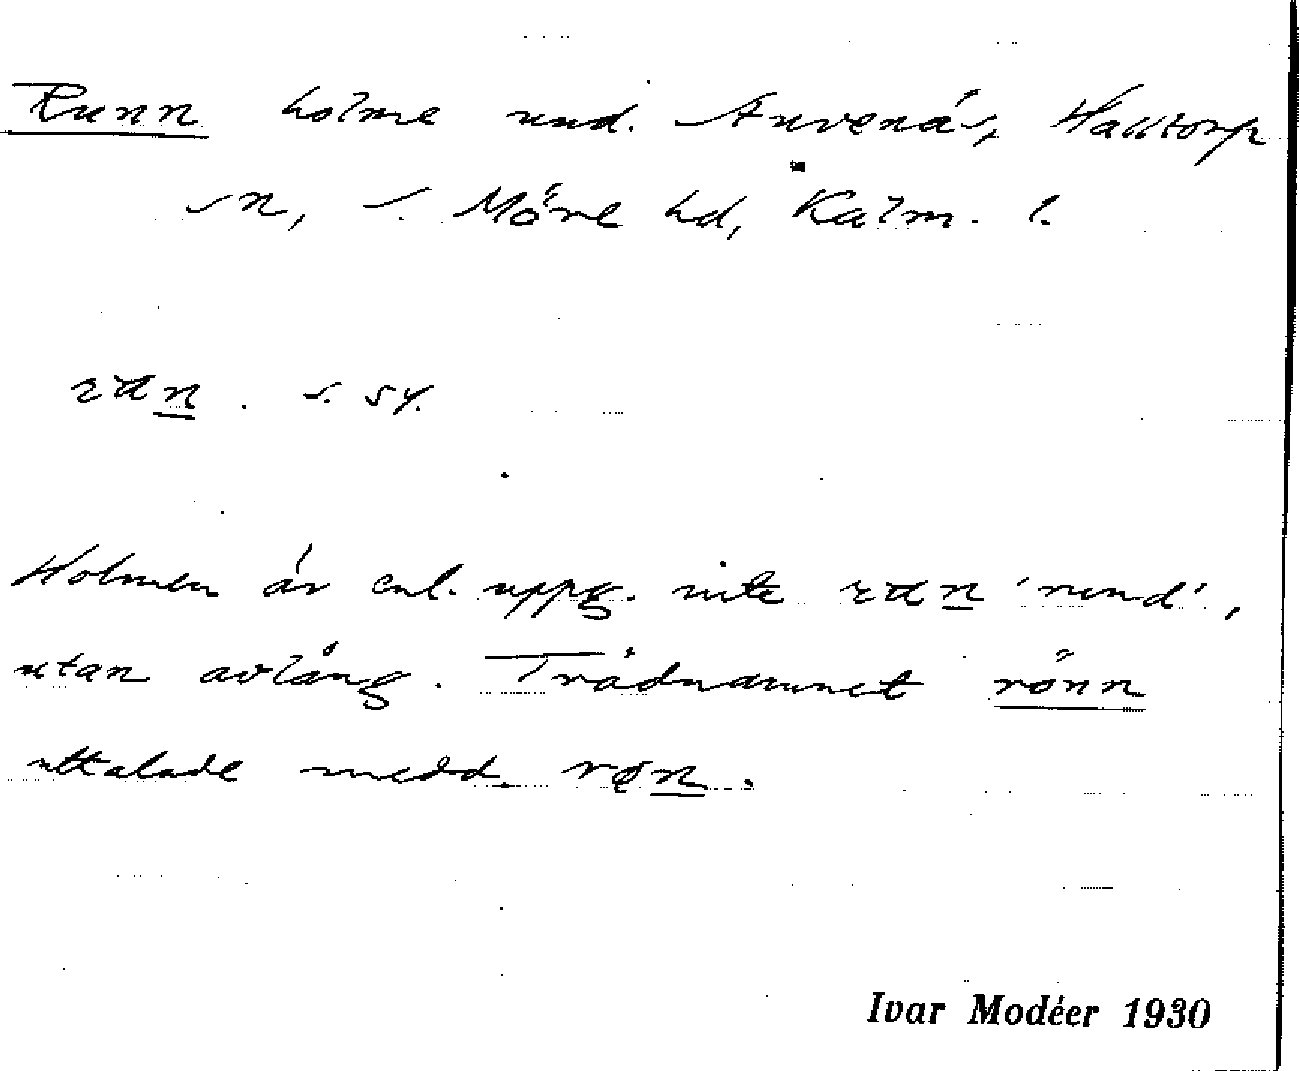 Runn holme und. Arvenäs, Halltorp
sn, s. Möre hd, Kalm. l.
run. s. sy.
Holmen är enl. uppg. inte run 'rund',
utan avlång. Trädnamnet rönn
uttalade medd. røn.
Ivar Modéer 1930